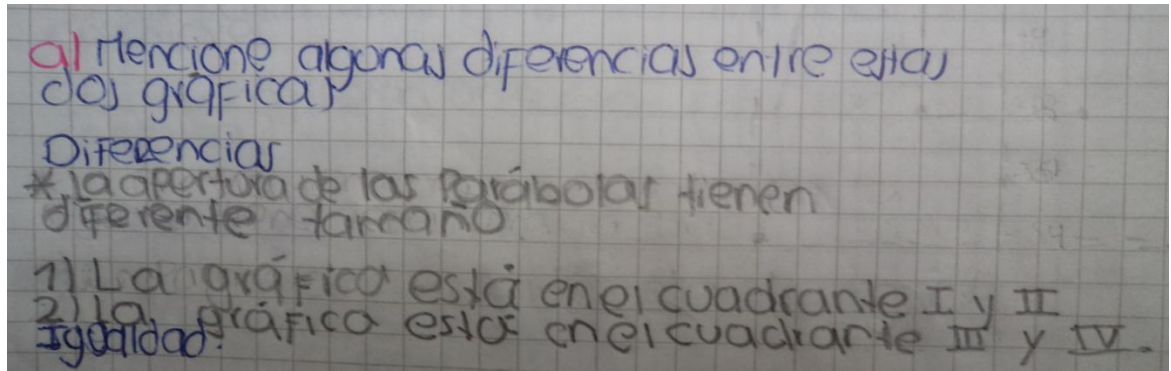 a) Mencione algunas diferencias entre estas
dos gráficas
Diferencias
* la apertura de las Parábolas tienen
diferente tamaño
1) La gráfica está en el cuadrante I y II
2) la gráfica está en el cuadrante III y IV.
Igualdad: